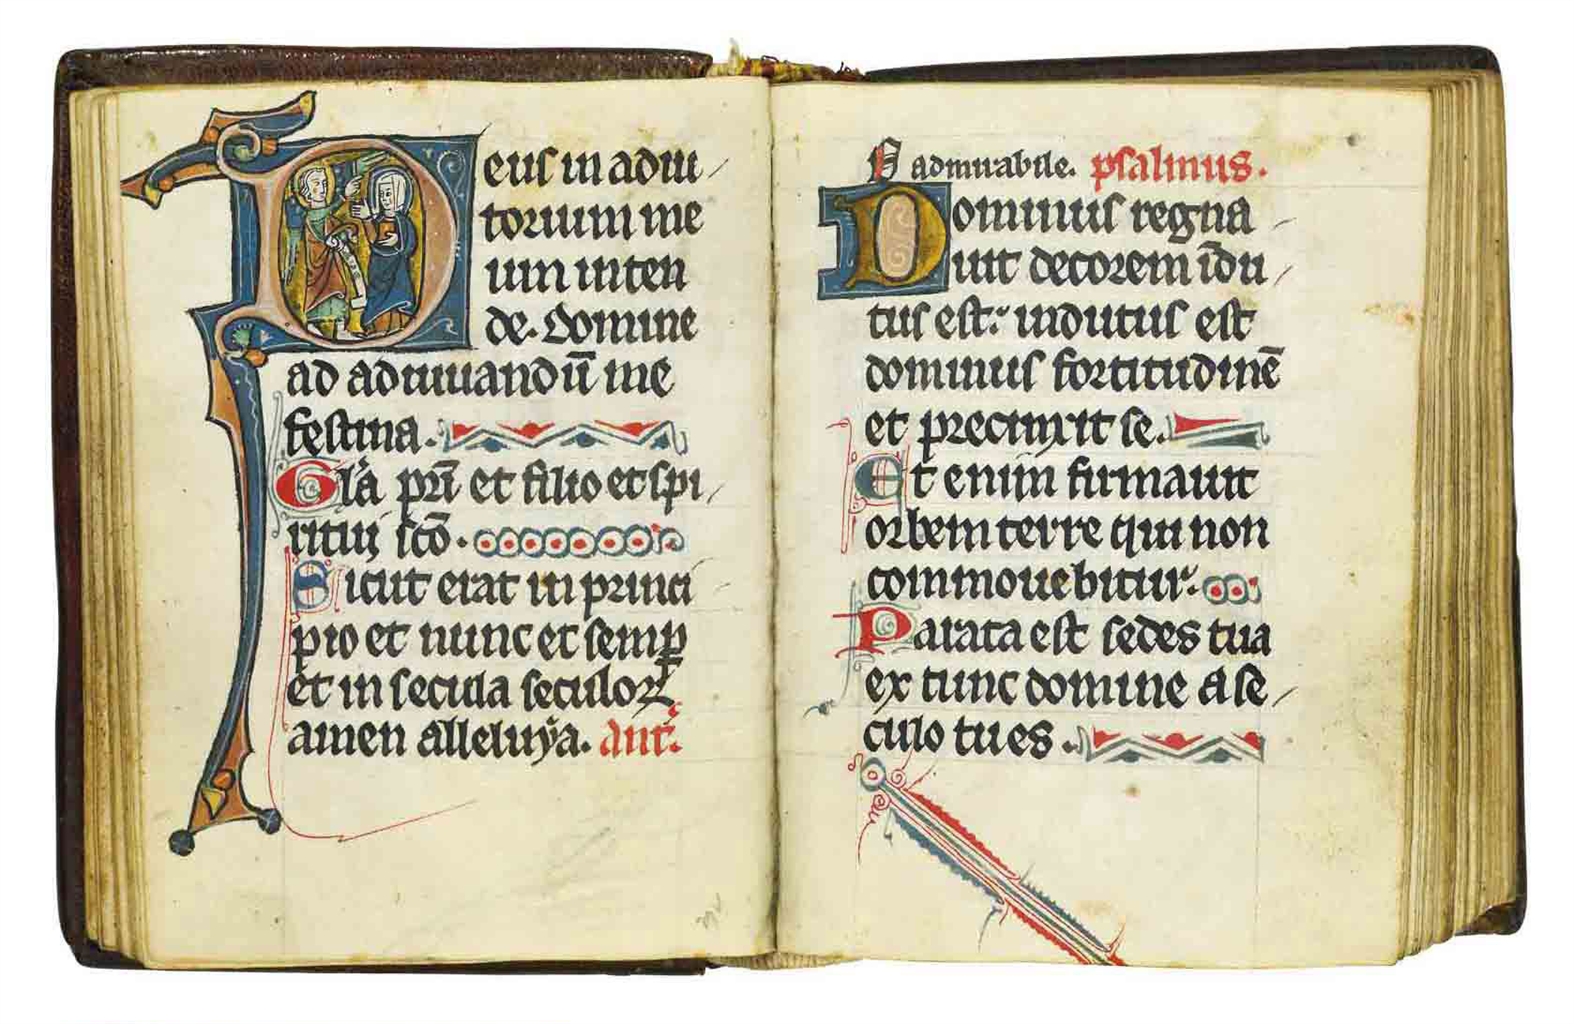 Deus in adiu
torium me
um inten
de. Domine
ad adiuuandū me
festina.
Glā pr̄i et filio et spi
ritui sc̄o.
Sicut erat in princi
pio et nunc et semꝑ
et in secula seculoꝝ
amen alleluya. ant.
O admirabile. psalmus.
Dominus regna
uit decorem īdu
tus est: indutus est
dominus fortitudinē
et precinxit se.
Et enim firmauit
orbem terre qui non
commouebitur.
Parata est sedes tua
ex tunc domine a se
culo tu es.